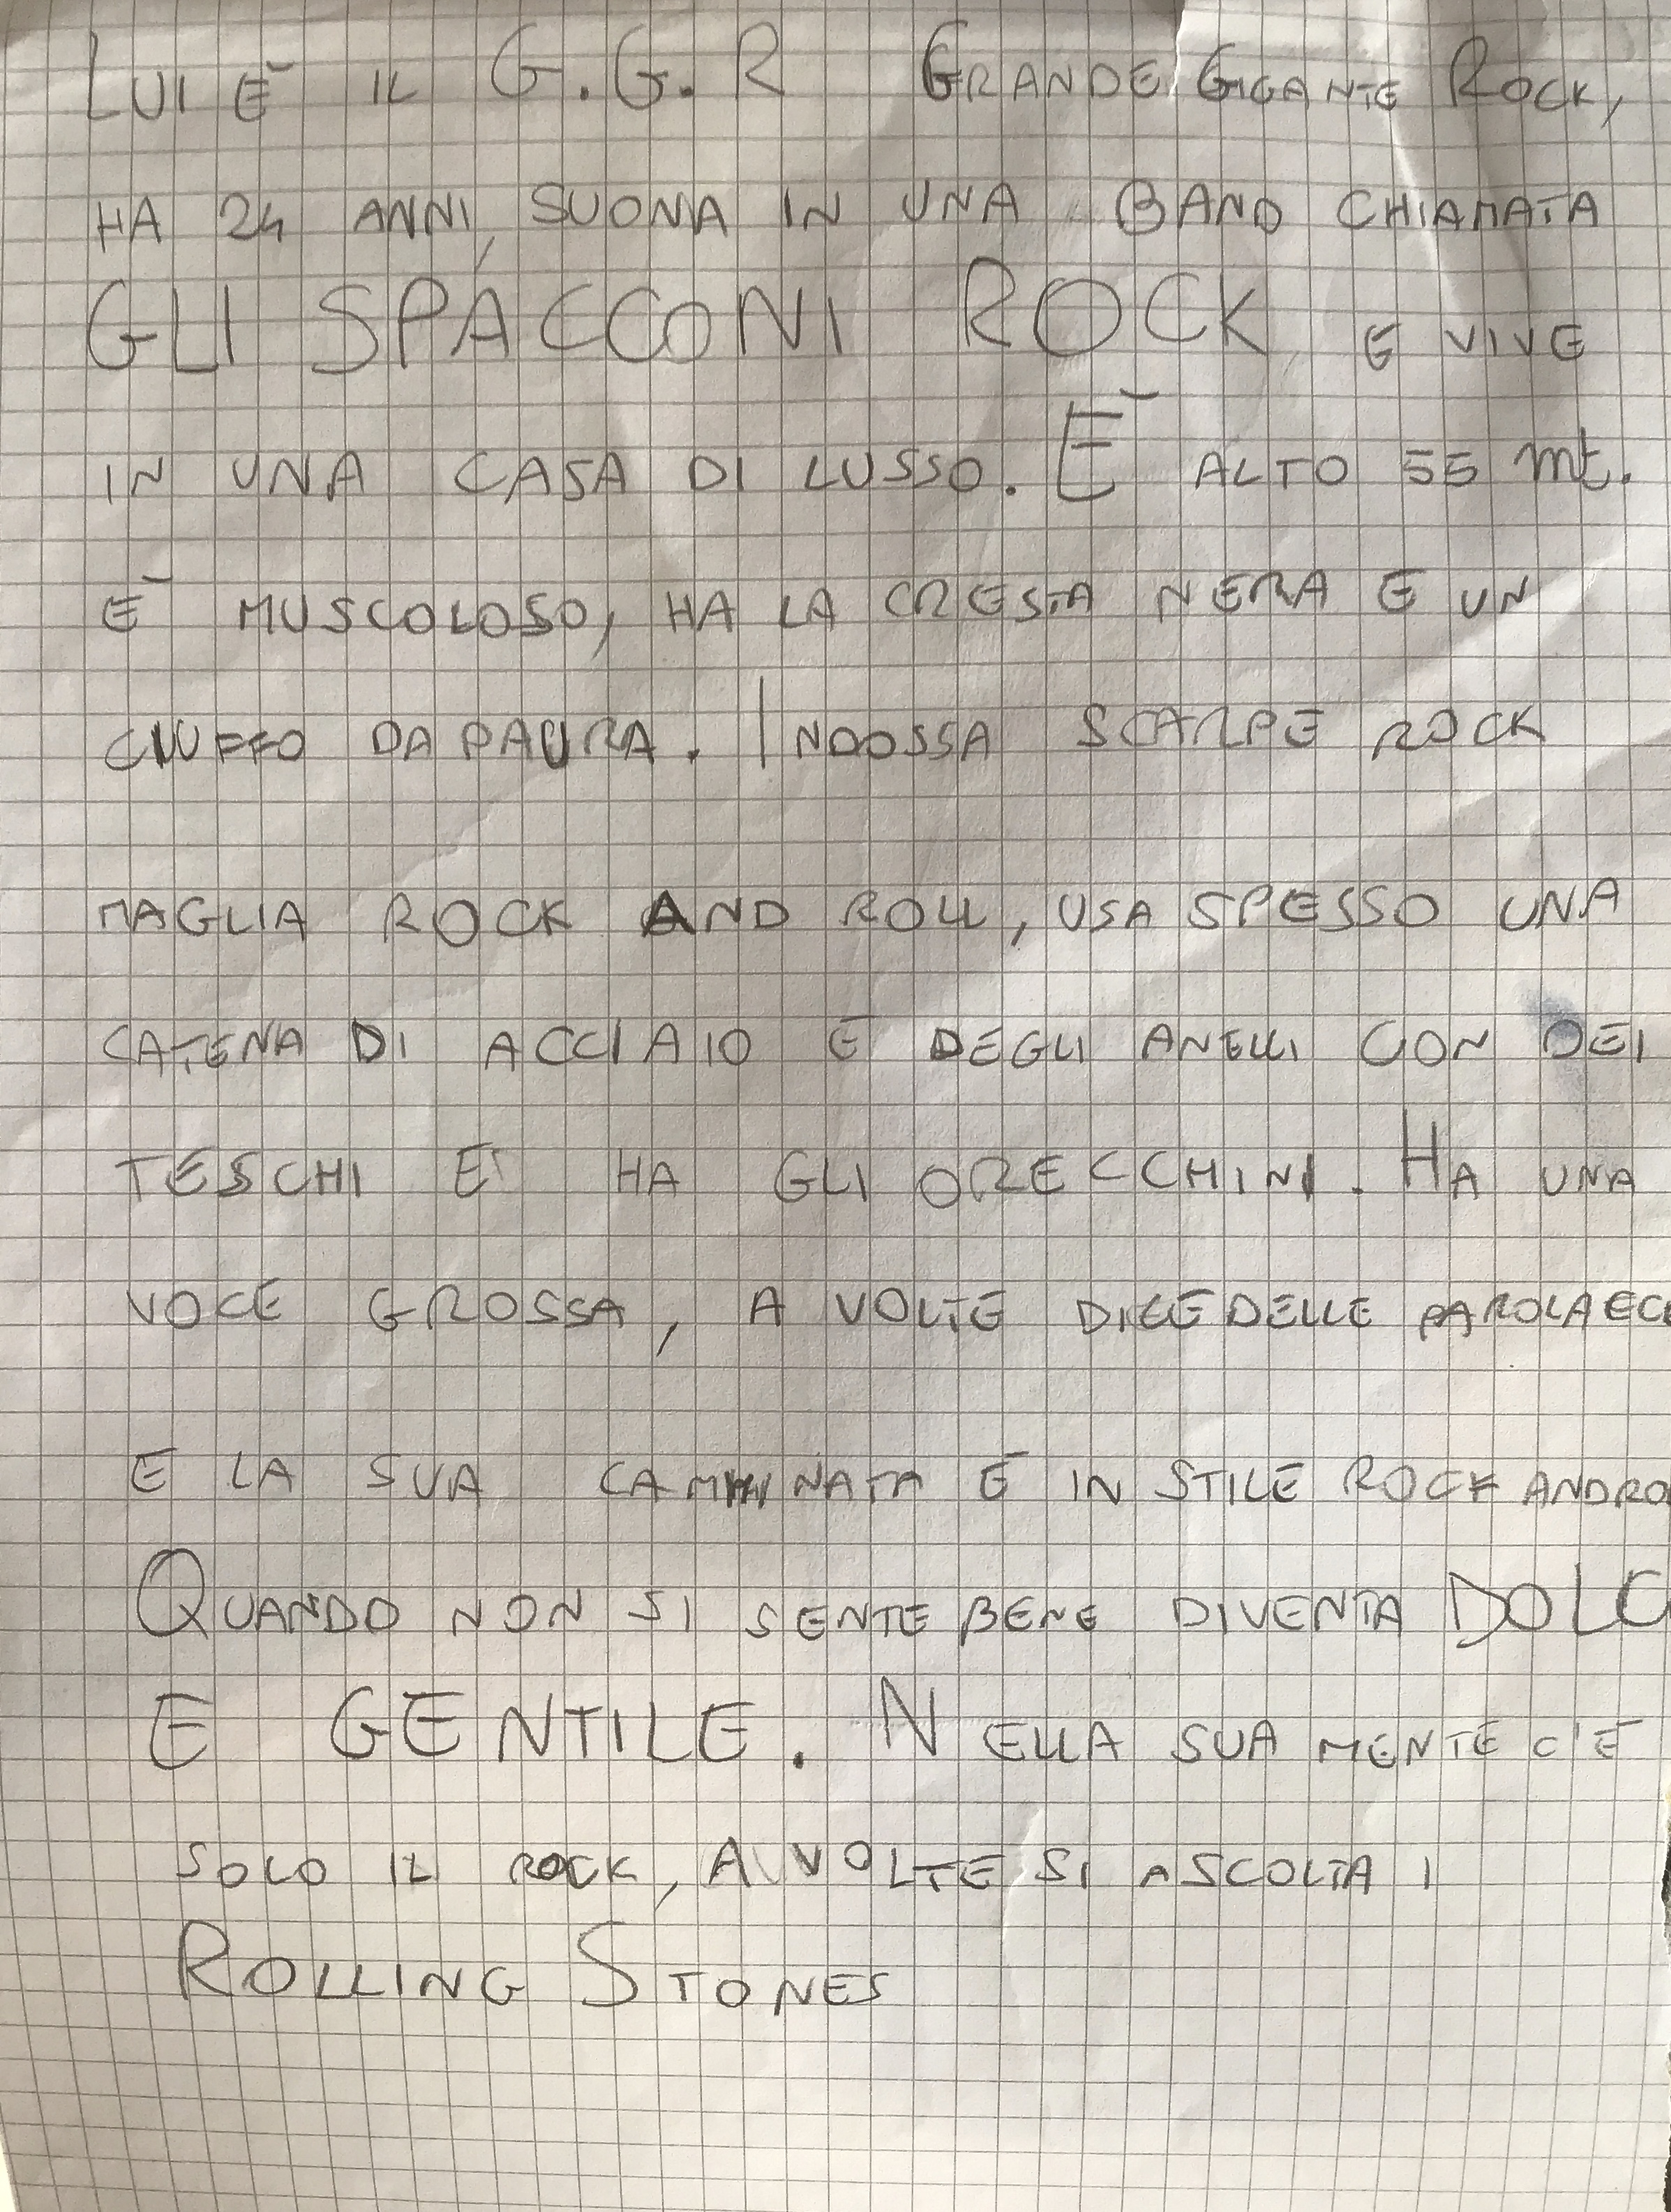 LUI È IL G.G.R GRANDE GIGANTE ROCK,
HA 24 ANNI, SUONA IN UNA BAND CHIAMATA
GLI SPACCONI ROCK E VIVE
IN UNA CASA DI LUSSO. È ALTO 55 mt.
È MUSCOLOSO, HA LA CRESTA NERA E UN
CIUFFO DA PAURA. INDOSSA SCARPE ROCK
MAGLIA ROCK AND ROLL, USA SPESSO UNA
CATENA DI ACCIAIO E DEGLI ANELLI CON DEI
TESCHI E HA GLI ORECCHINI. HA UNA
VOCE GROSSA, A VOLTE DICE DELLE PAROLAECE
E LA SUA CAMMINATA È IN STILE ROCK ANDRO
QUANDO NON SI SENTE BENE DIVENTA DOLC
E GENTILE. NELLA SUA MENTE C'È
SOLO IL ROCK, A VOLTE SI ASCOLTA I
ROLLING STONES